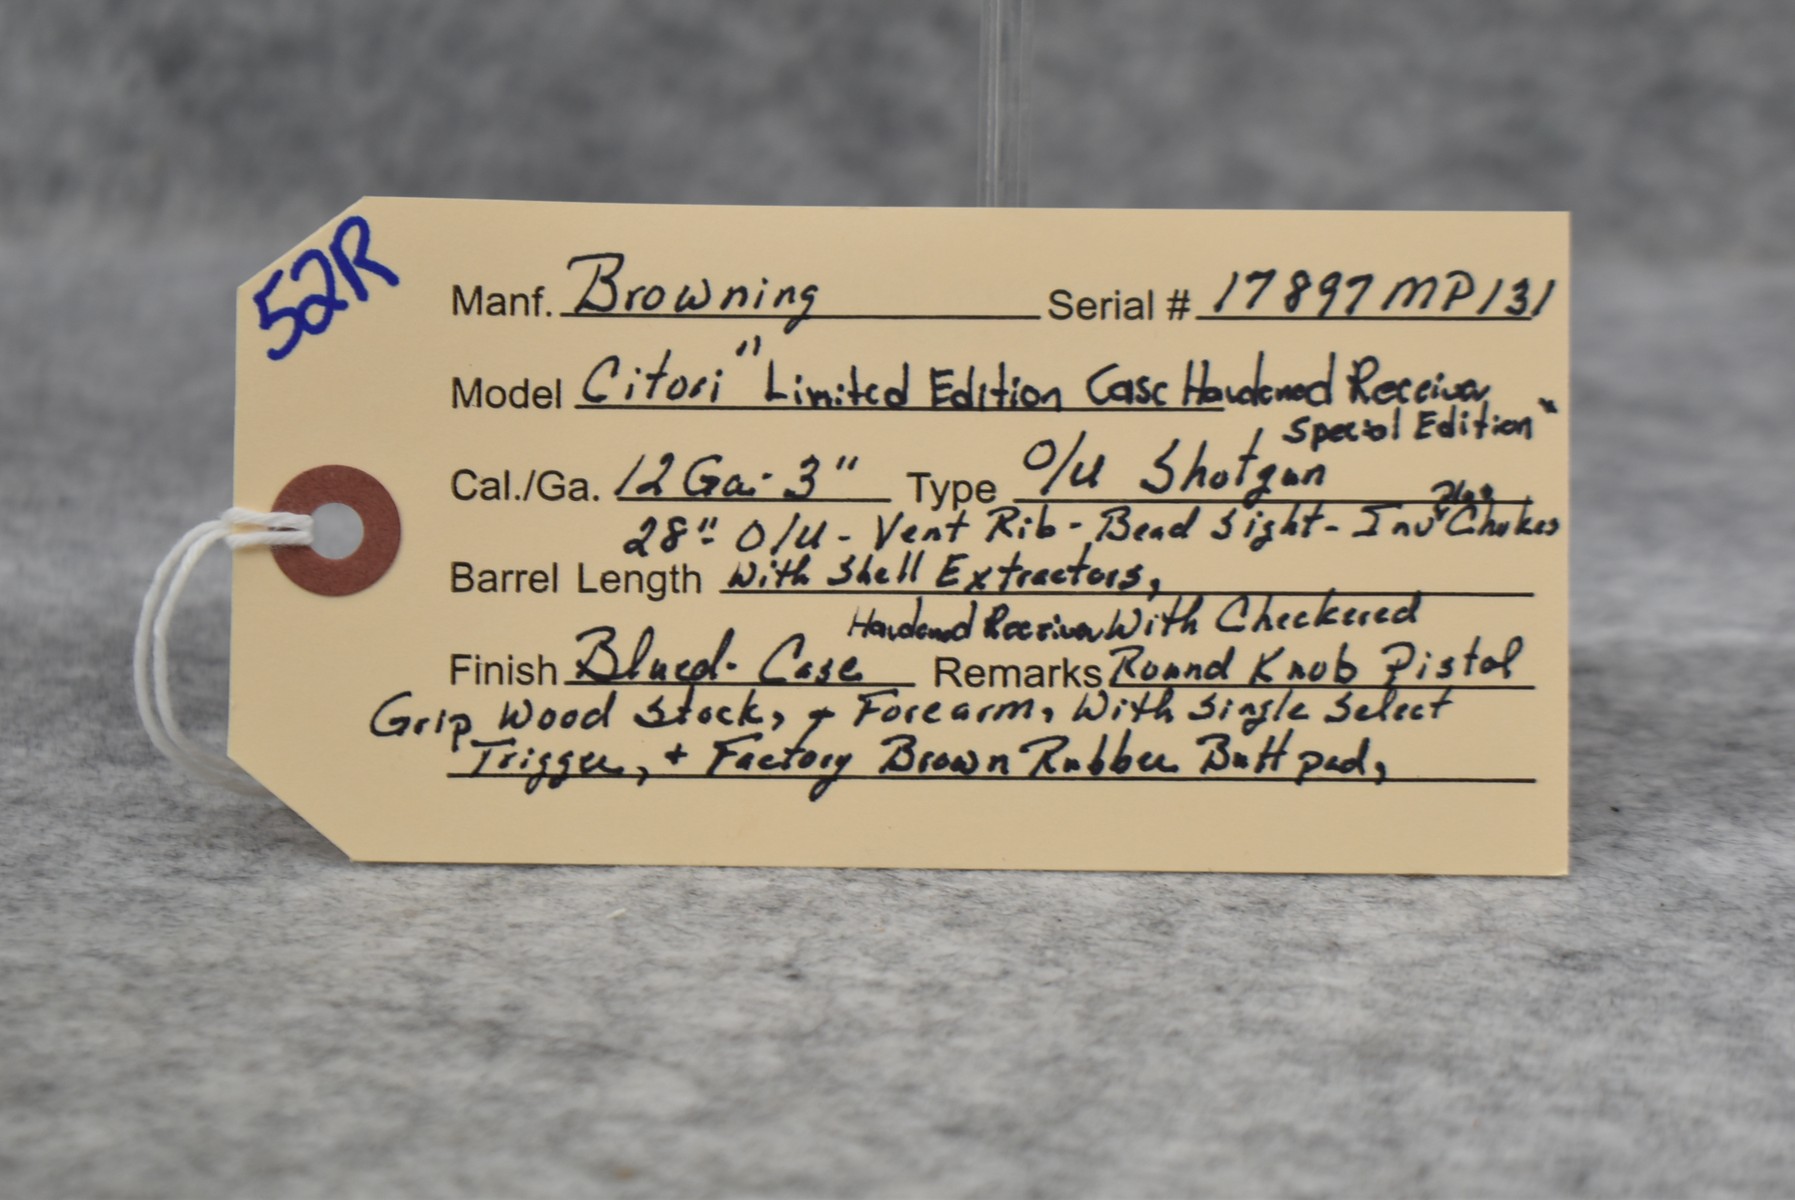 52R
Manf. Browning Serial # 17897MP131
Model Citori "Limited Edition Case Hardened Receiver
Special Edition"
Cal./Ga. 12 Ga.- 3" Type O/U Shotgun
28" O/U - Vent Rib - Bead Sight - Inv Plus Chokes
Barrel Length With Shell Extractors,
Hardened Receiver With Checkered
Finish Blued - Case Remarks Round Knob Pistol
Grip Wood Stock, + Forearm, With Single Select
Trigger, + Factory Brown Rubber Butt pad,